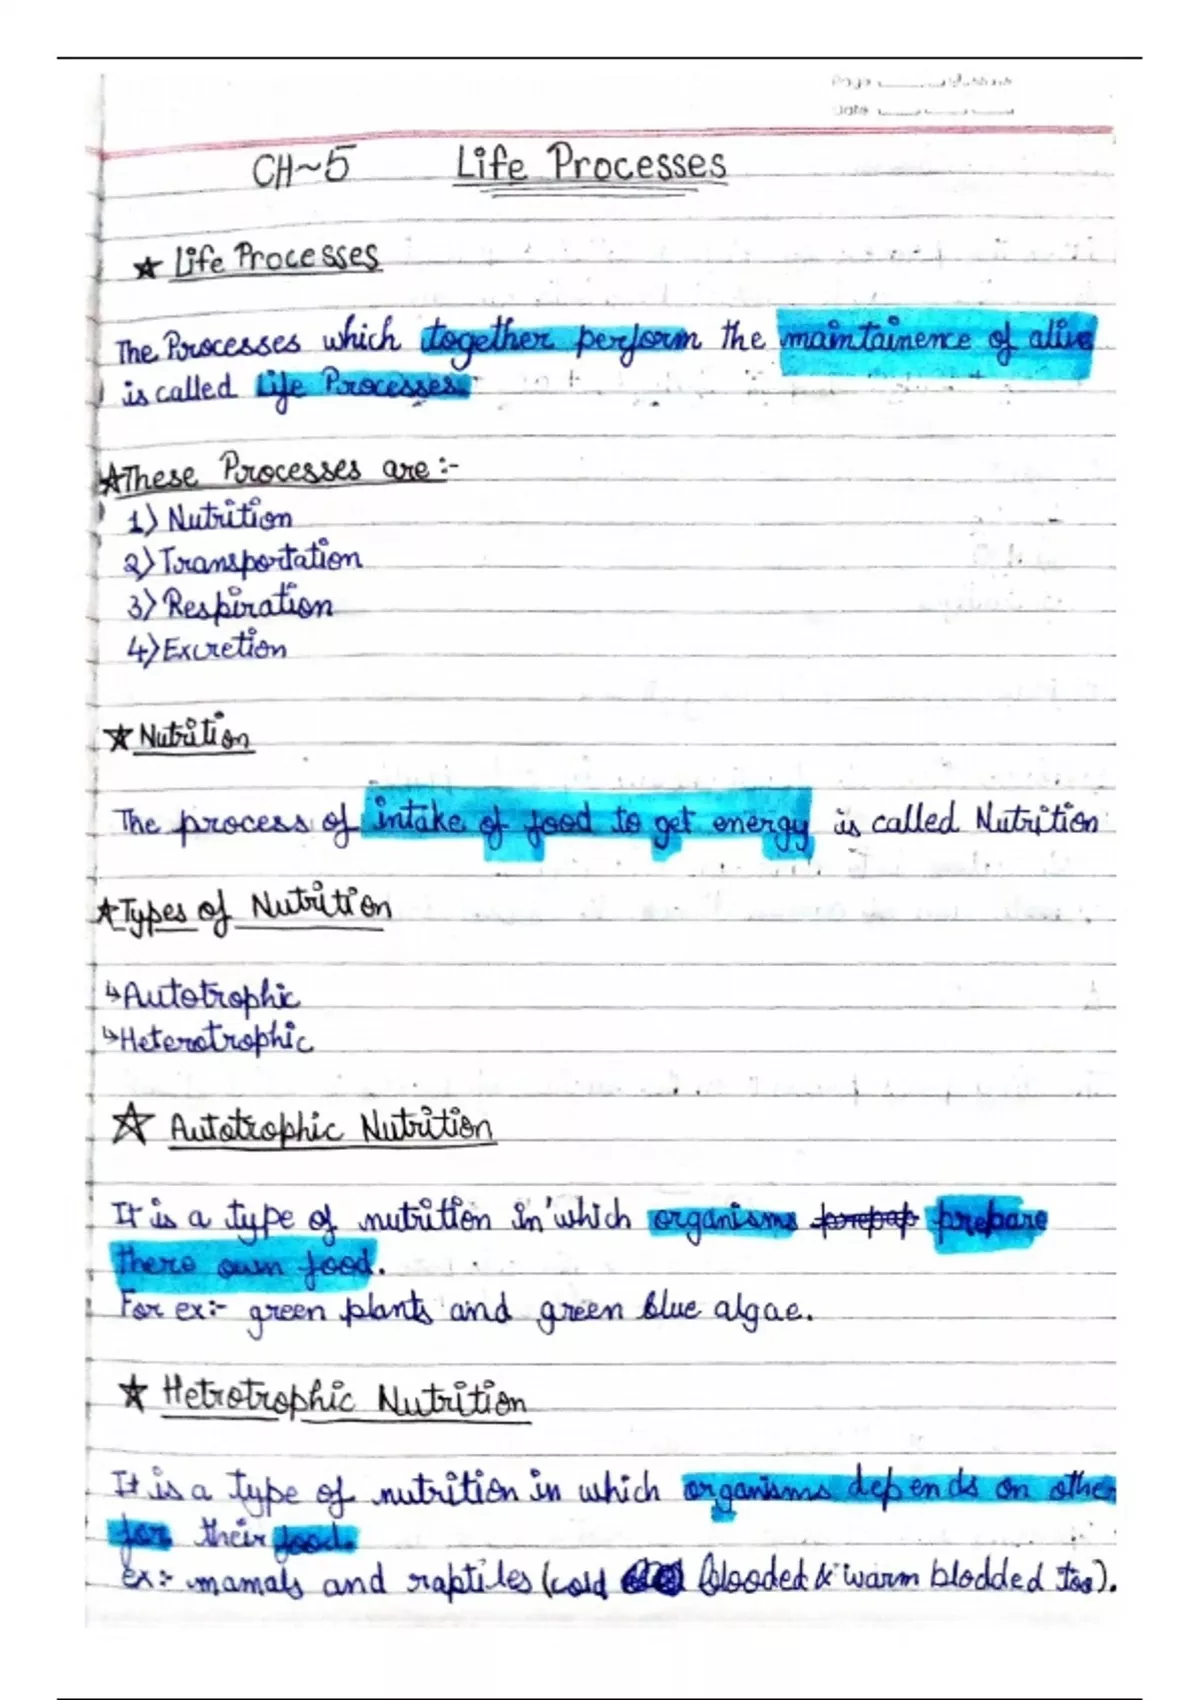 Page
Date
CH~5 Life Processes
☆ Life Processes
The Processes which together perform the maintainence of alive
is called Life Processes.
☆These Processes are :-
1) Nutrition
2) Transportation
3) Respiration
4) Excretion
☆ Nutrition
The process of intake of food to get energy is called Nutrition
☆Types of Nutrition
↳Autotrophic
↳Heterotrophic
☆ Autotrophic Nutrition
It is a type of nutrition in which organisms prepap prepare
there own food.
For ex:- green plants and green blue algae.
☆ Hetrotrophic Nutrition
It is a type of nutrition in which organisms depends on other
for their food.
ex:- mamals and raptiles (cold blooded & warm blodded too).